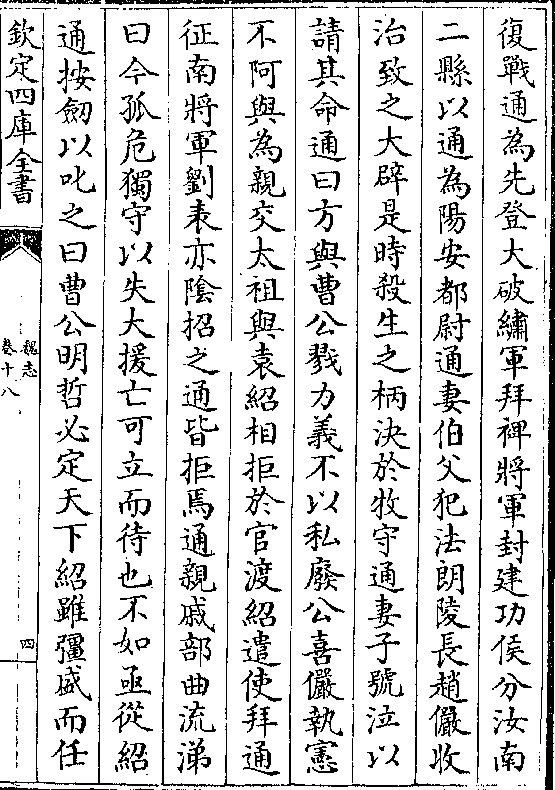 復戰通為先登大破繡軍拜裨將軍封建功侯分汝南
二縣以通為陽安都尉通妻伯父犯法朗陵長趙儼收
治致之大辟是時殺生之柄決於牧守通妻子號泣以
請其命通曰方與曹公戮力義不以私廢公喜儼執憲
不阿與為親交太祖與袁紹相拒於官渡紹遣使拜通
征南將軍劉表亦陰招之通皆拒焉通親戚部曲流涕
曰今孤危獨守以失大援亡可立而待也不如亟從紹
通按劒以叱之曰曹公明哲必定天下紹雖彊盛而任
欽定四庫全書
魏志
卷十八
四